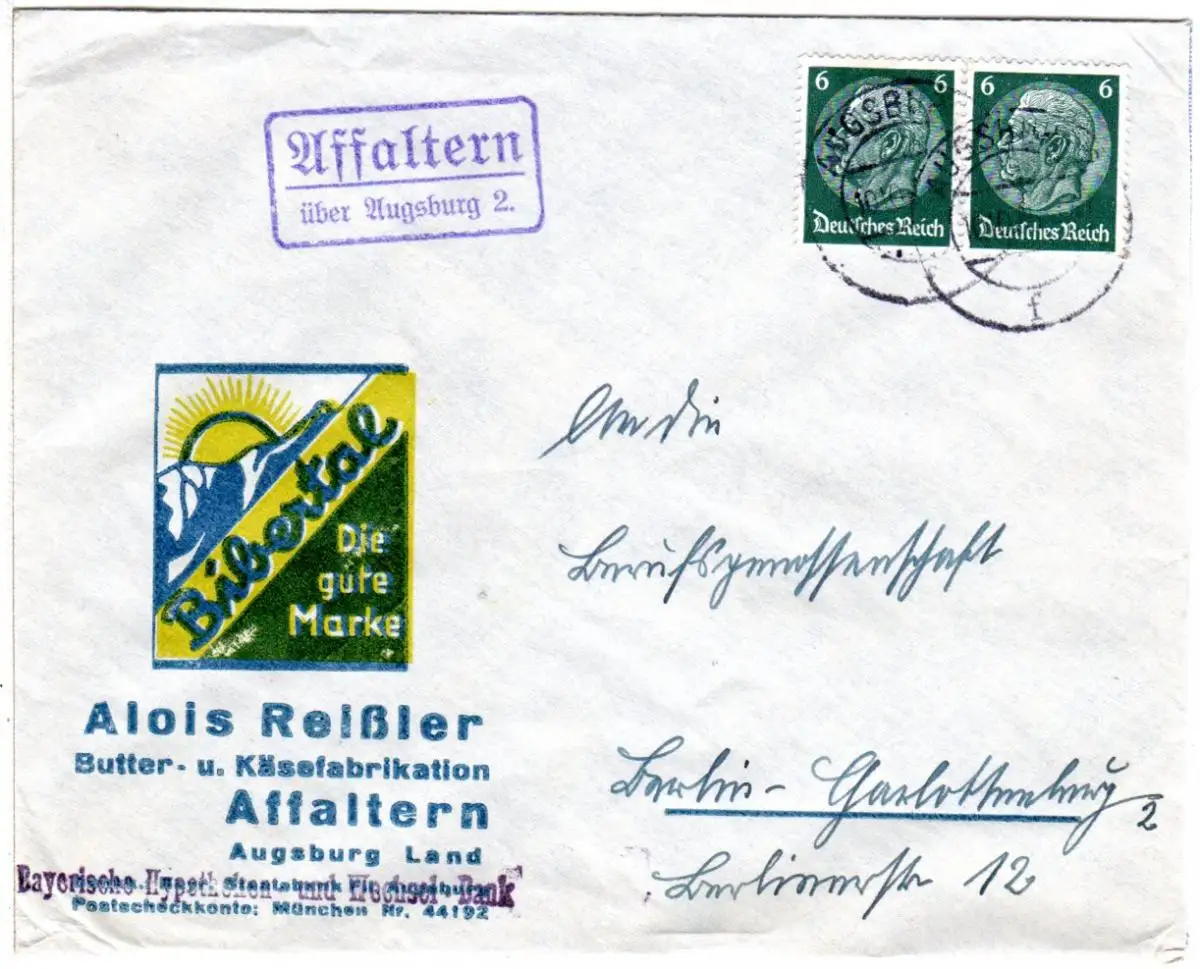 6 6
6 6
Deutsches Reich
Deutsches Reich
AUGSB
AUGSB
f
Affaltern
über Augsburg 2.
Bibertal
Die
gute
Marke
An die
Berufsgenossenschaft
Berlin-Charlottenburg 2
Berlinerstr 12
Alois Reißler
Butter- u. Käsefabrikation
Affaltern
Augsburg Land
Bayerische Hypotheken- und Wechsel-Bank
Postscheckkonto: München Nr. 44192